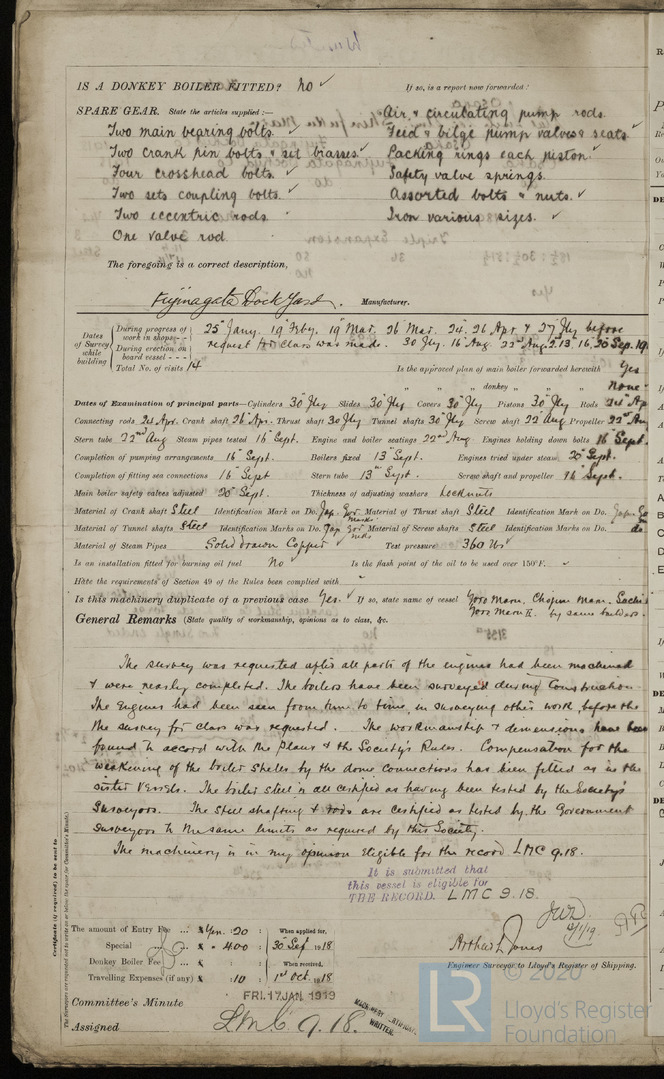 IS A DONKEY BOILER FITTED? No ✓ If so, is a report now forwarded?
SPARE GEAR. State the articles supplied:—
Two main bearing bolts. ✓
Two crank pin bolts & set brasses. ✓
Four crosshead bolts. ✓
Two sets coupling bolts. ✓
Two eccentric rods.
One valve rod.
Air & circulating pump rods.
Feed & bilge pump valves & seats.
Packing rings each piston.
Safety valve springs.
Assorted bolts & nuts. ✓
Iron various sizes. ✓
The foregoing is a correct description,
Fujinagata Dock Yard. Manufacturer.
Dates of Survey while building
During progress of work in shops - - 25 Jany. 19 Feby. 19 Mar. 26 Mar. 24. 26 Apr. & 27 Jly before
During erection on board vessel - - - request for class was made. 30 Jly. 16 Aug. 22nd Aug. 2. 13. 16. 20 Sep. 19
Total No. of visits 14 Is the approved plan of main boiler forwarded herewith Yes
" " " donkey " " " None
Dates of Examination of principal parts—Cylinders 30 Jly Slides 30 Jly Covers 30 Jly Pistons 30 Jly Rods 24 Ap
Connecting rods 24 Apr. Crank shaft 26 Apr. Thrust shaft 30 Jly Tunnel shafts 30 Jly Screw shaft 22 Aug Propeller 22nd Au
Stern tube 22nd Aug Steam pipes tested 16 Sept. Engine and boiler seatings 22nd Aug Engines holding down bolts 16 Sept.
Completion of pumping arrangements 16 Sept. Boilers fixed 13 Sept. Engines tried under steam 20 Sept.
Completion of fitting sea connections 16 Sept Stern tube 13 Sept. Screw shaft and propeller 16 Sept.
Main boiler safety valves adjusted 20 Sept. Thickness of adjusting washers Locknuts
Material of Crank shaft Steel Identification Mark on Do. Jap. Gov Marks Material of Thrust shaft Steel Identification Mark on Do. Jap. Go
Material of Tunnel shafts Steel Identification Marks on Do. Jap Gov Mks Material of Screw shafts Steel Identification Marks on Do. do
Material of Steam Pipes Solid drawn Copper ✓ Test pressure 360 lbs ✓
Is an installation fitted for burning oil fuel No ✓ Is the flash point of the oil to be used over 150°F. ✓
Have the requirements of Section 49 of the Rules been complied with
Is this machinery duplicate of a previous case Yes. ✓ If so, state name of vessel Yoro Maru, Chojun Maru. Sachi
General Remarks (State quality of workmanship, opinions as to class, &c. Yoro Maru II. by same builders.
The survey was requested after all parts of the engines had been machined
& were nearly completed. The boilers have been surveyed during Construction.
The Engines had been seen from time to time, in surveying other work, before the
the survey for class was requested. The workmanship & dimensions have been
found to accord with the Plans & the Society's Rules. Compensation for the
weakening of the boiler shells by the dome connections has been fitted as in the
sister Vessels. The boiler steel is all certified as having been tested by the Society's
Surveyors. The steel shafting & rods are certified as tested by the Government
Surveyors to the same limits as required by this Society.
The machinery is in my opinion eligible for the record LMC 9.18.
It is submitted that
this vessel is eligible for
THE RECORD. LMC 9.18.
Certificate (if required) to be sent to
The Surveyors are requested not to write on or below the space for Committee's Minute.
The amount of Entry Fee ... Yen. 20 : When applied for,
Special ... 400 : 30 Sep 1918
Donkey Boiler Fee ... : When received,
Travelling Expenses (if any) : 10 : 1st Oct. 1918
Arthur L Jones
Engineer Surveyor to Lloyd's Register of Shipping.
Committee's Minute FRI. 17 JAN 1919
Assigned LMC 9.18.
MACHINERY CERTIFICATE WRITTEN.
© 2020
LR
Lloyd's Register
Foundation